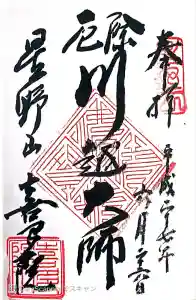 奉拝
平成二十七年
六月二六日
厄除
川越大師
星野山
喜多院